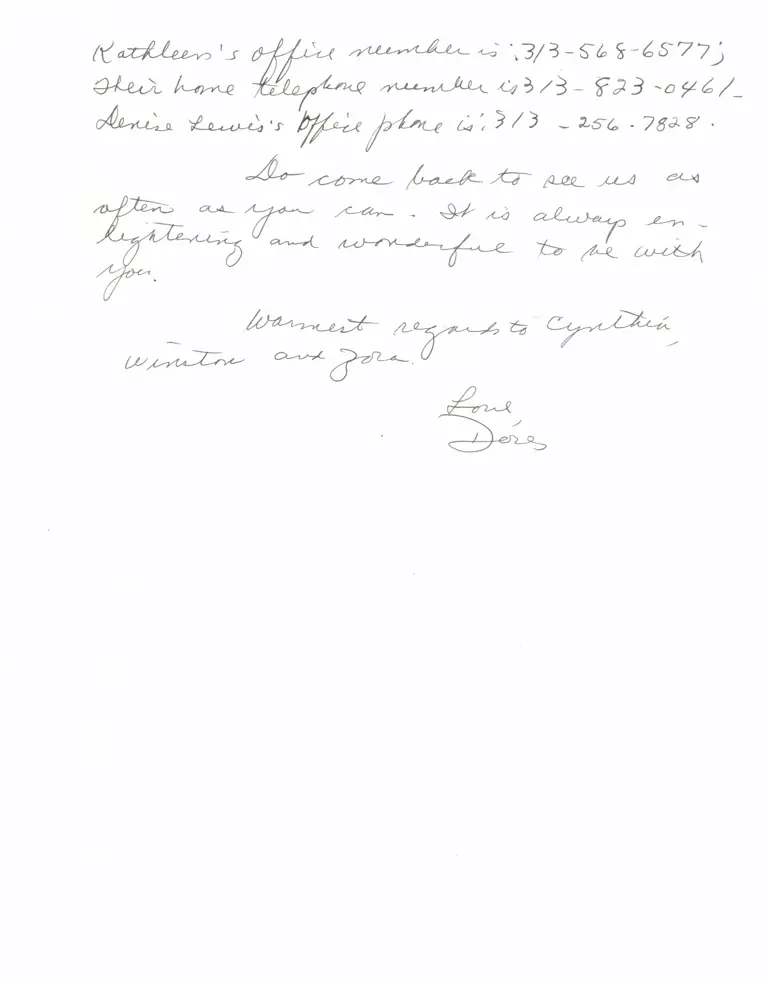 Kathleen's office number is: 313-568-6577;
Their home telephone number is 313-823-0461-
Denise Lewis's office phone is: 313-256-7828.
Do come back to see us as
often as you can. It is always en-
lightening and wonderful to be with
you.
Warmest regards to Cynthia,
Winston and Zora.
Love,
Dores